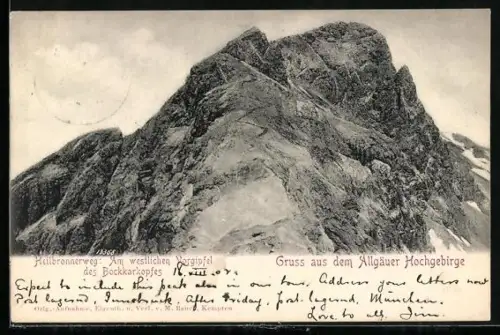 Heilbronnerweg: Am westlichen Vorgipfel
des Bockkarkopfes
Gruss aus dem Allgäuer Hochgebirge
Expect to include this peak also in our tour. Address your letters now
Post legend, Innsbruck. After Friday, post legend, München.
Orig.-Aufnahme, Eigenth. u. Verl. v. M. Kempten
Love to all. Jim.